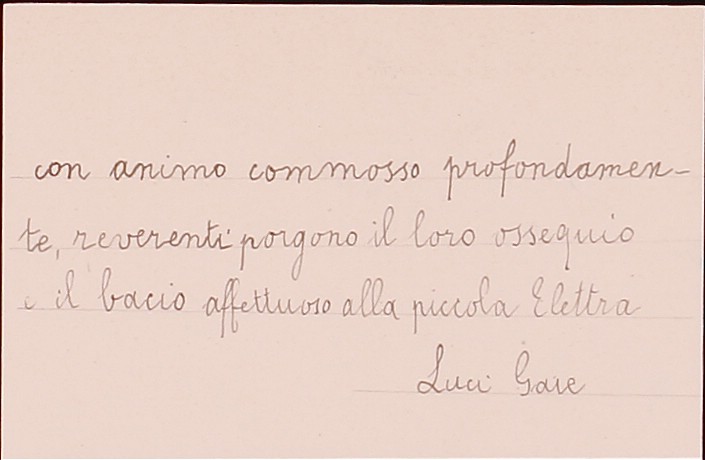 con animo commosso profondamen-
te, reverenti porgono il loro ossequio
e il bacio affettuoso alla piccola Elettra
Luci Gaie